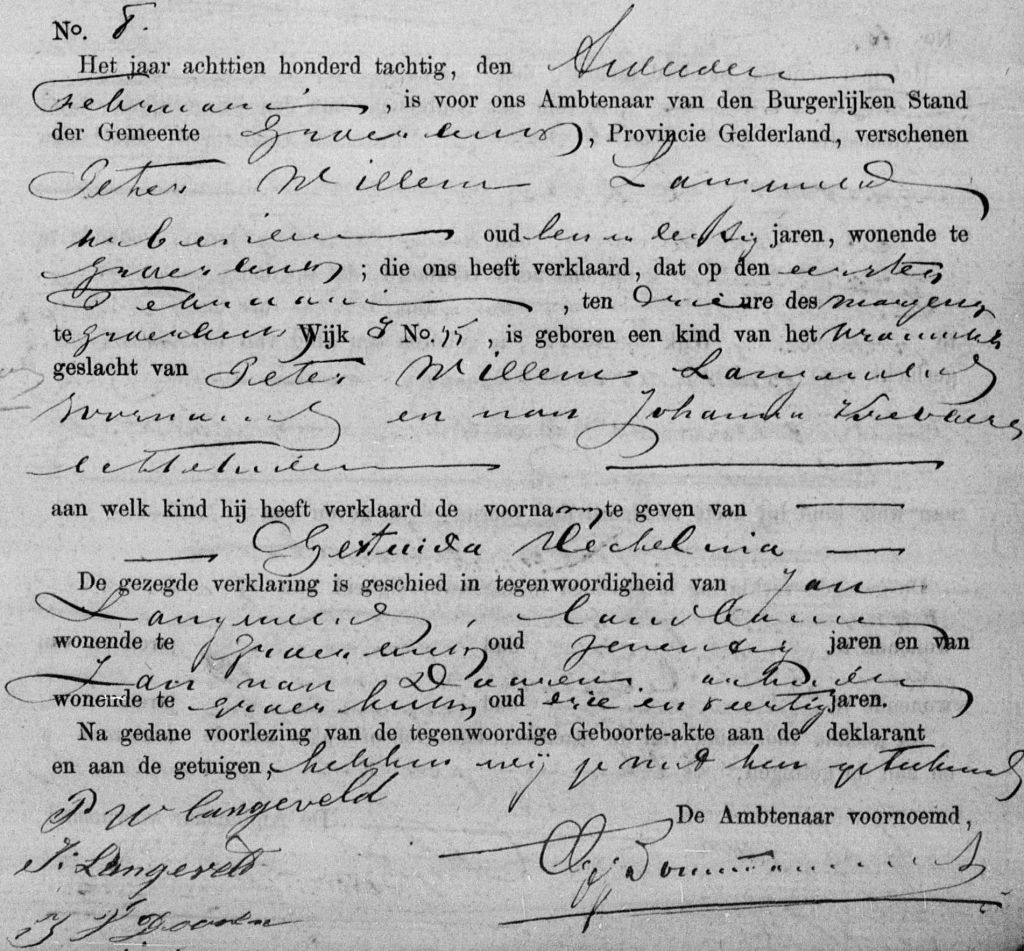 No. 8.
Het jaar achttien honderd tachtig, den
Februari, is voor ons Ambtenaar van den Burgerlijken Stand
der Gemeente Groesbeek, Provincie Gelderland, verschenen
Peter Willem Langeveld
oud jaren, wonende te
Groesbeek; die ons heeft verklaard, dat op den eersten
Februari, ten drie ure des morgens
te Groesbeek Wijk No. 15, is geboren een kind van het
geslacht van Peter Willem Langeveld
voornoemd en van Johanna
echtelieden
aan welk kind hij heeft verklaard de voornamen te geven van
Gertruida Mechelina
De gezegde verklaring is geschied in tegenwoordigheid van Jan
Langeveld, landbouwer
wonende te Groesbeek oud zeventig jaren en van
Jan van Dooren arbeider
wonende te Groesbeek oud drie en veertig jaren.
Na gedane voorlezing van de tegenwoordige Geboorte-akte aan de deklarant
en aan de getuigen, hebben wij je met hen geteekend
P W Langeveld
De Ambtenaar voornoemd,
J: Langeveld
J V Dooren